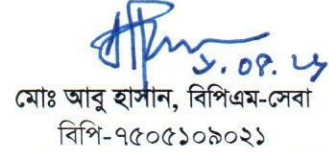 মোঃ আবু হাসান, বিপিএম-সেবা
বিপি-৭৫০৫১০৯০২১